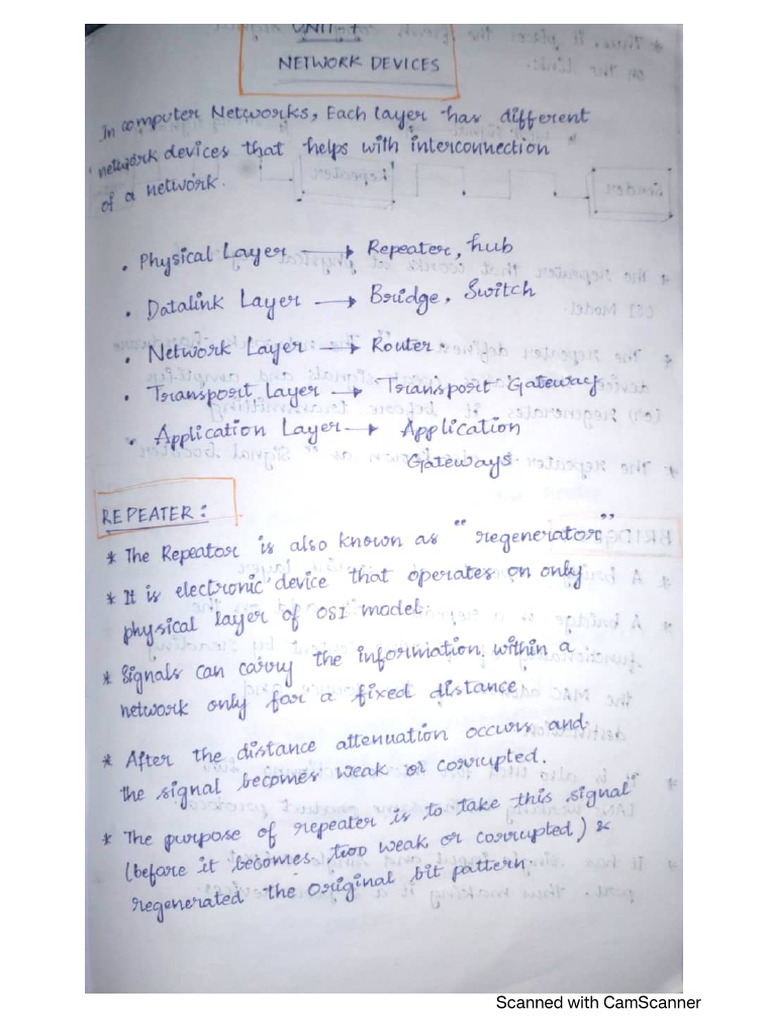 UNIT-
NETWORK DEVICES
In computer Networks, Each layer has different
network devices that helps with interconnection
of a network.
• Physical Layer → Repeater, hub
• Datalink Layer → Bridge, Switch
• Network Layer → Router.
• Transport Layer → Transport Gateway
• Application Layer → Application
Gateways.
REPEATER:
* The Repeator is also known as "regenerator"
* It is electronic device that operates on only
physical layer of OSI model.
* Signals can carry the information within a
network only for a fixed distance.
* After the distance attenuation occurs and
the signal becomes weak or corrupted.
* The purpose of repeater is to take this signal
(before it becomes too weak or corrupted) &
regenerated the original bit pattern
Scanned with CamScanner